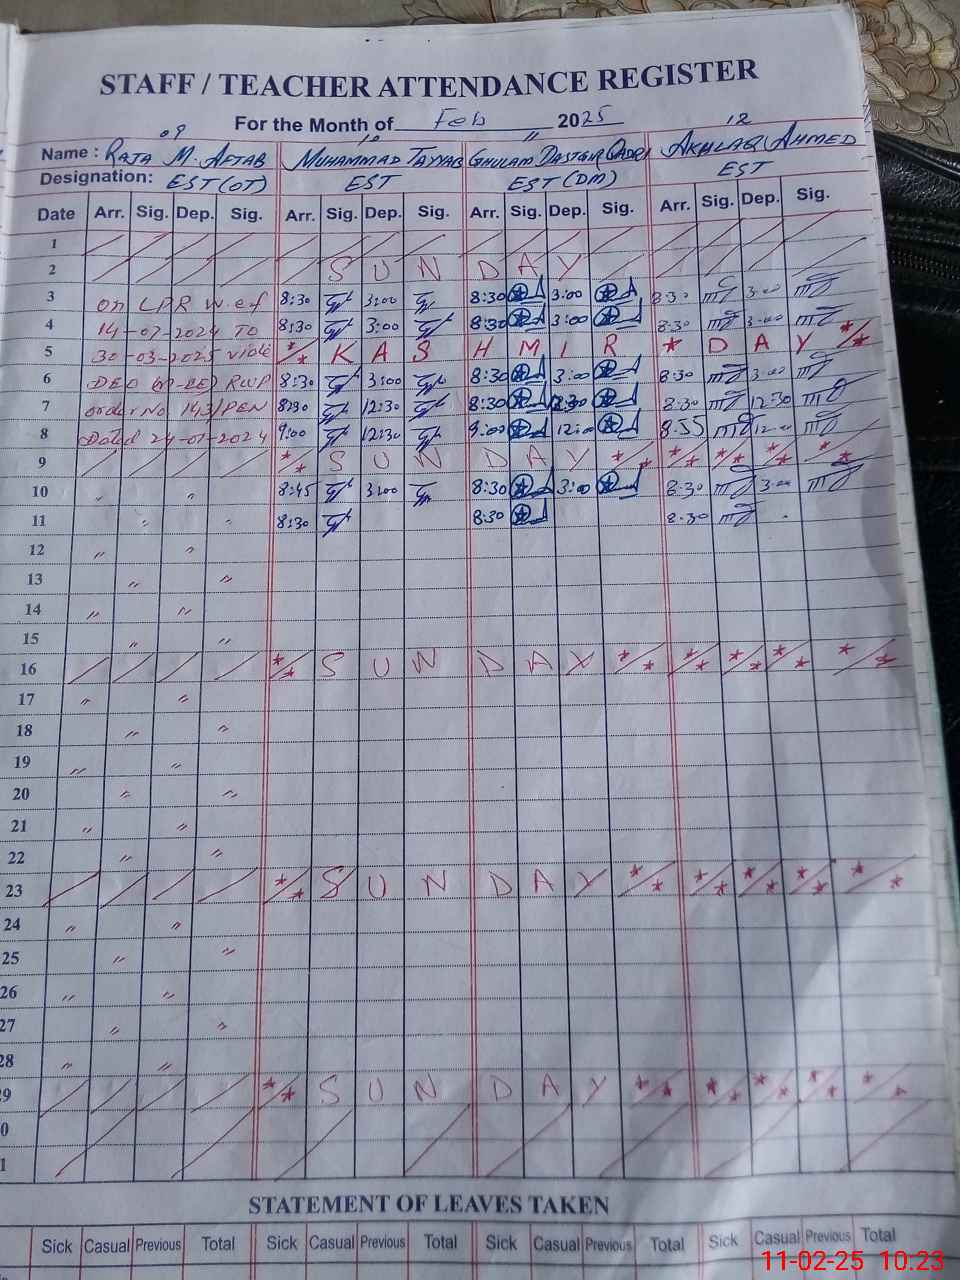 STAFF / TEACHER ATTENDANCE REGISTER
For the Month of Feb 2025
09 10 11 12
Name : RAJA M. AFTAB MUHAMMAD TAYYAB GHULAM DASTGIR QADRI AKHLAQ AHMED
Designation: EST (OT) EST EST (DM) EST
Date Arr. Sig. Dep. Sig. Arr. Sig. Dep. Sig. Arr. Sig. Dep. Sig. Arr. Sig. Dep. Sig.
1
2 S U N D A Y
3 on LPR w.ef 8:30 3:00 8:30 3:00 8:30 3:00
4 14-07-2024 TO 8:30 3:00 8:30 3:00 8:30 3:00
5 30-03-2025 vide * * K A S H M I R * D A Y * *
6 DEO RWP 8:30 3:00 8:30 3:00 8:30 3:00
7 order No 143/PEN 8:30 12:30 8:30 12:30 8:30 12:30
8 Dated 24-07-2024 9:00 12:30 9:00 12:00 8:55 12:00
9 * * S U N D A Y * * * * * * * * * *
10 " " 8:45 3:00 8:30 3:00 8:30 3:00
11 " " 8:30 8:30 8:30
12 " "
13 " "
14 " "
15 " "
16 * * S U N D A Y * * * * * * * * * *
17 " "
18 " "
19 " "
20 " "
21 " "
22 " "
23 * * S U N D A Y * * * * * * * * * *
24 " "
25 " "
26 " "
27 " "
28 " "
9 * * S U N D A Y * * * * * * * * * *
0
1
STATEMENT OF LEAVES TAKEN
Sick Casual Previous Total Sick Casual Previous Total Sick Casual Previous Total Sick Casual Previous Total
11-02-25 10.23